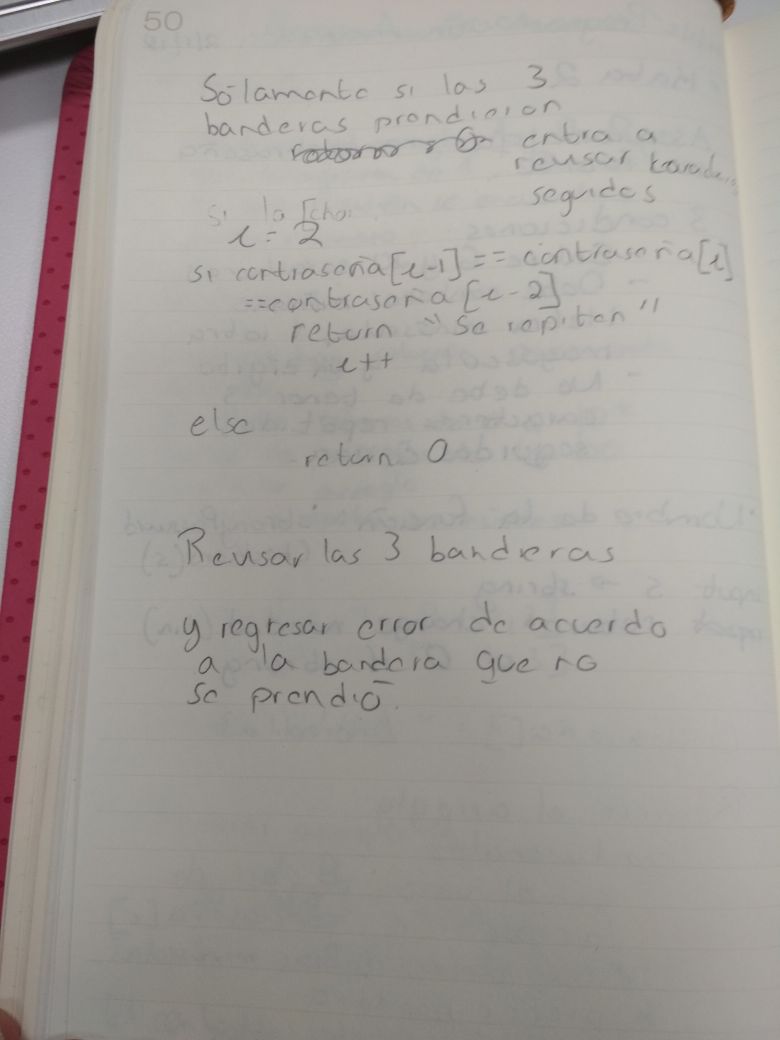 50
Solamente si las 3
banderas prendieron
entra a
reusar
seguidos
si la
i = 2
si contraseña[i-1] == contraseña[i]
==contraseña[i-2]
return "Se repiten"
i++
else
return 0
Reusar las 3 banderas
y regresar error de acuerdo
a la bandera que no
se prendió.